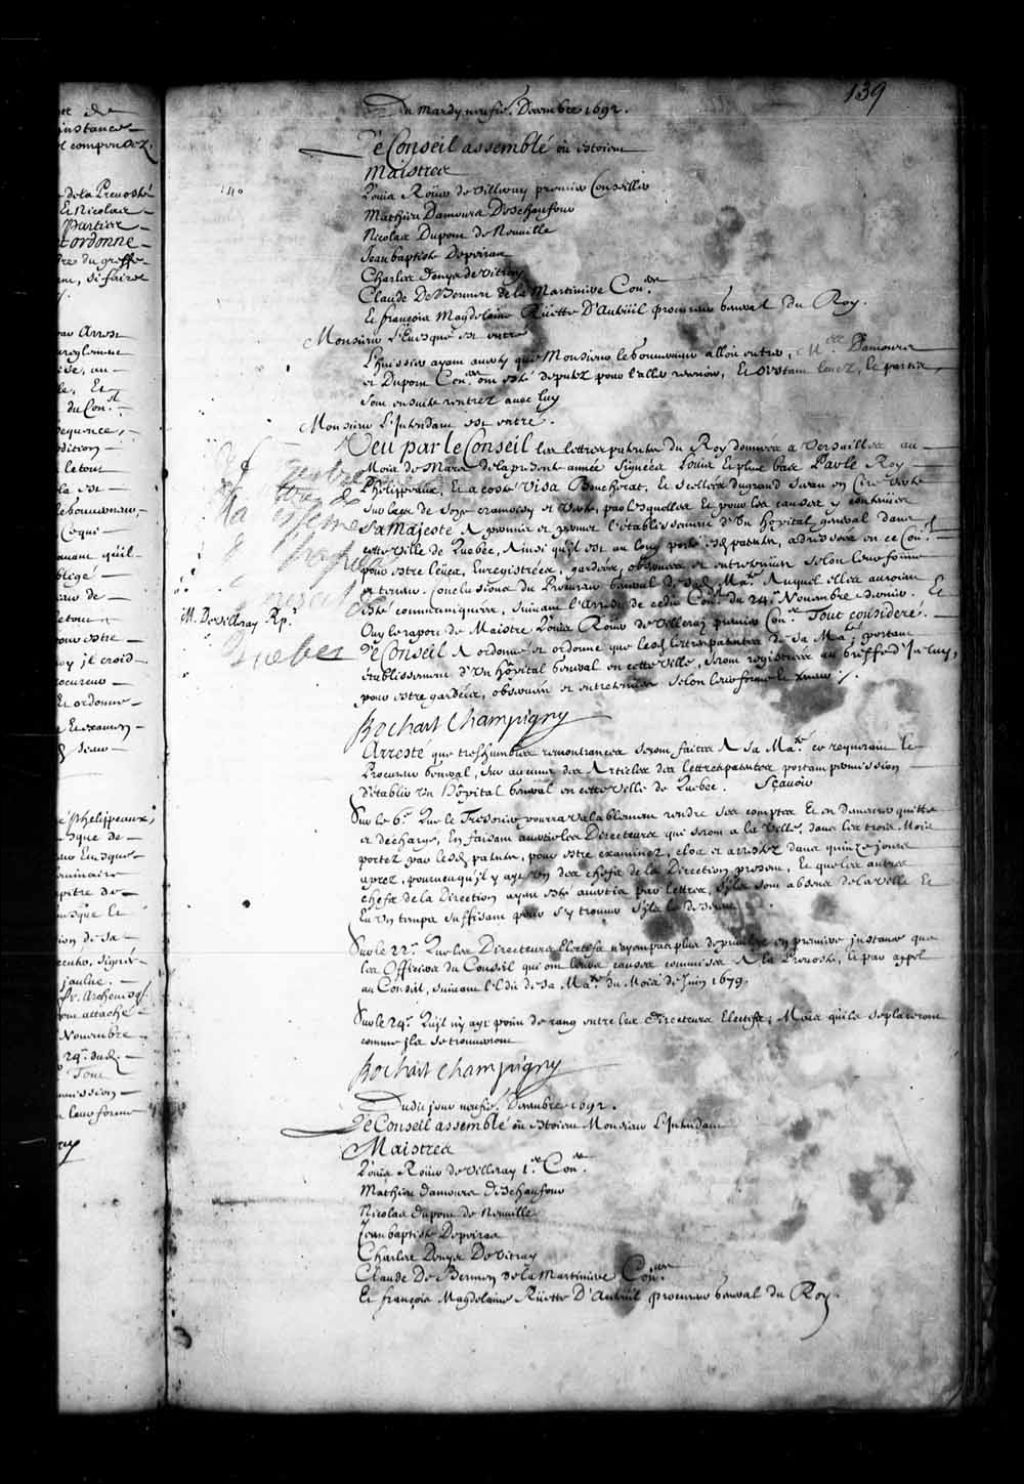 139
Du Mardy neufie. Decembre 1692.
Le Conseil assemblé ou estoient
Maistres
Louis Roüer de Villeray premier Conseiller
Mathieu Damours Deschaufour
Nicolas Dupont de Neuuille
Jean baptiste Depeiras
Charles Denys de Vitray
Claude De Bermen de la Martiniere Con.ers
Et françois Magdelaine Rüette D'Auteüil procureur general du Roy.
Monsieur L'Euesque est entré
L'huissier ayant auerty que Monsieur le gouuerneur alloit entrer, M.es Damours
et Dupont Con.ers ont esté deputez pour l'aller receuoir, Et estant leuez, le partie
sont ensuite rentrez auec luy
Monsieur L'Intendant est entré.
Veu par le Conseil les lettres patentes du Roy données a Versailles au
Mois de Mars de la presente année Signées Louis Et plus bas Par le Roy
Phelippeaux, Et a costé Visa Boucherat, Et scellées du grand Sceau en Cire Verte
Sur lacs de Soye cramoisy et Verte, par lesquelles Et pour les causes y contenües
Sa Majesté A permis et permet l'établissement d'Un hôpital general dans
cette ville de Quebec, Ainsi qu'il est au long porté esd. patentes, adressées en ce Con.l
pour estre leües, Enregistrées, gardées, obseruées et entretenües selon leur forme
et teneur. Conclusions du Procureur general de sad. Ma.té Auquel elles auroient
esté communiquées, suiuant l'Arrest de cedit Con.l du 24.e Nouembre dernier. Et
M. De Villeray Rp.r
Ouy le raport de Maistre Louis Roüer de Villeray premier Con.er Tout consideré.
Le Conseil A ordonné et ordonne que lesd. lettres patentes de Sa Ma.té portant
établissement d'Un hôpital general en cette ville, seront registrées au greffe d'Iceluy,
pour estre gardées, obseruées et entretenües selon leur forme et teneur /.
Bochart Champigny
Arresté que tres humbles remontrances seront faites A Sa Ma.té ce requerant le
Procureur general, sur aucuns des Articles des lettres patentes portant permission
d'établir Un hôpital general en cette ville de Quebec. Sçauoir
Sur le 6.e Que le Tresorier pourra valablement rendre ses comptes Et en demeurer quitte
et déchargé, En faisant auertir les Directeurs qui seront a la Ville, dans les trois Mois
portez par lesd. patentes, pour estre examinez, clos et arrestez dans quinze jours
aprez, pourueu qu'il y ayt Un des chefs de la Direction present, Et que les autres
chefs de la Direction ayent esté auertis par lettres, s'ils sont absens de la ville Et
En Un temps suffisant pour s'y trouuer s'ils le desirent.
Sur le 22.e Que les Directeurs Electifs n'ayent pas plus de priuilege en premiere instance que
les Officiers du Conseil qui ont leurs causes commises A la Preuosté, Et par appel
au Conseil, suiuant l'Edit de Sa Ma.té du Mois de Juin 1679.
Sur le 29.e Qu'il n'y ayt point de rang entre les Directeurs Electifs; Mais qu'ils se placeront
comme ils se trouueront
Bochart Champigny
Dudit jour neufie. Decembre 1692.
Le Conseil assemblé ou estoient Monsieur L'Intendant
Maistres
Louis Roüer de Villeray 1.er Con.er
Mathieu Damours Deschaufour
Nicolas Dupont de Neuuille
Jean baptiste Depeiras
Charles Denys De Vitray
Claude De Bermen de la Martiniere Con.ers
Et françois Magdelaine Rüette D'Auteüil procureur general du Roy.